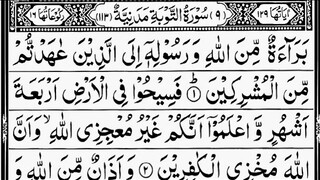 اٰیَاتُهَا ١٢٩ (٩) سُوْرَةُ التَّوْبَةِ مَدَنِيَّةٌ (١١٣) رُكُوْعَاتُهَا ١٦
بَرَآءَةٌ مِّنَ اللّٰهِ وَ رَسُوْلِهٖۤ اِلَى الَّذِيْنَ عٰهَدْتُّمْ
مِّنَ الْمُشْرِكِيْنَ ۞١ فَسِيْحُوْا فِي الْاَرْضِ اَرْبَعَةَ
اَشْهُرٍ وَّ اعْلَمُوْۤا اَنَّكُمْ غَيْرُ مُعْجِزِي اللّٰهِ ۙ وَ اَنَّ
اللّٰهَ مُخْزِي الْكٰفِرِيْنَ ۞٢ وَ اَذَانٌ مِّنَ اللّٰهِ وَ